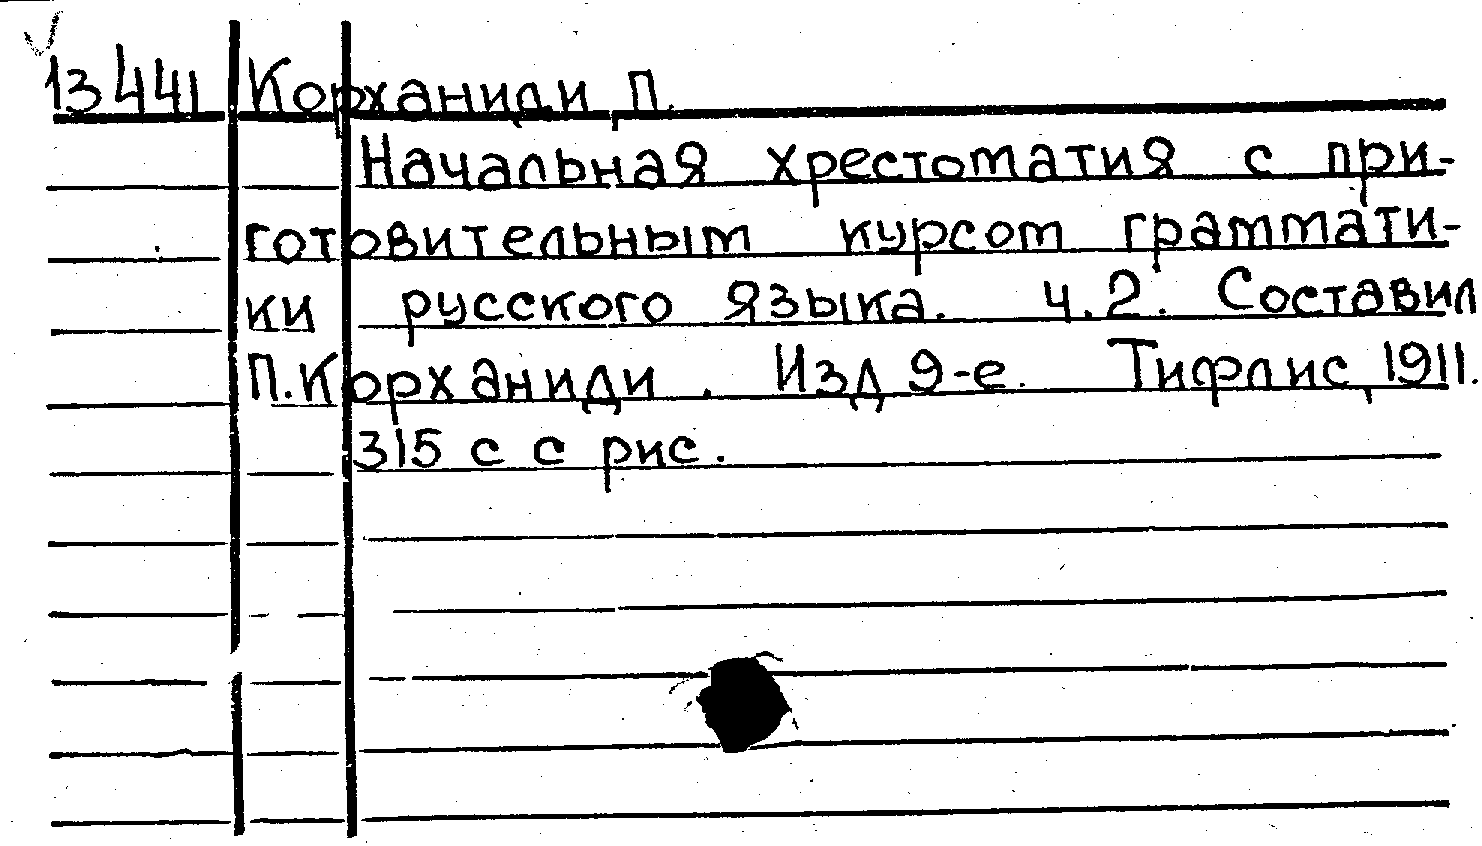 13441 Корханиди, П.
Начальная хрестоматия с при-
готовительным курсом граммати-
ки русского языка. Ч.2. Составил
П. Корханиди. Изд 9-е. Тифлис, 1911.
315 с с рис.